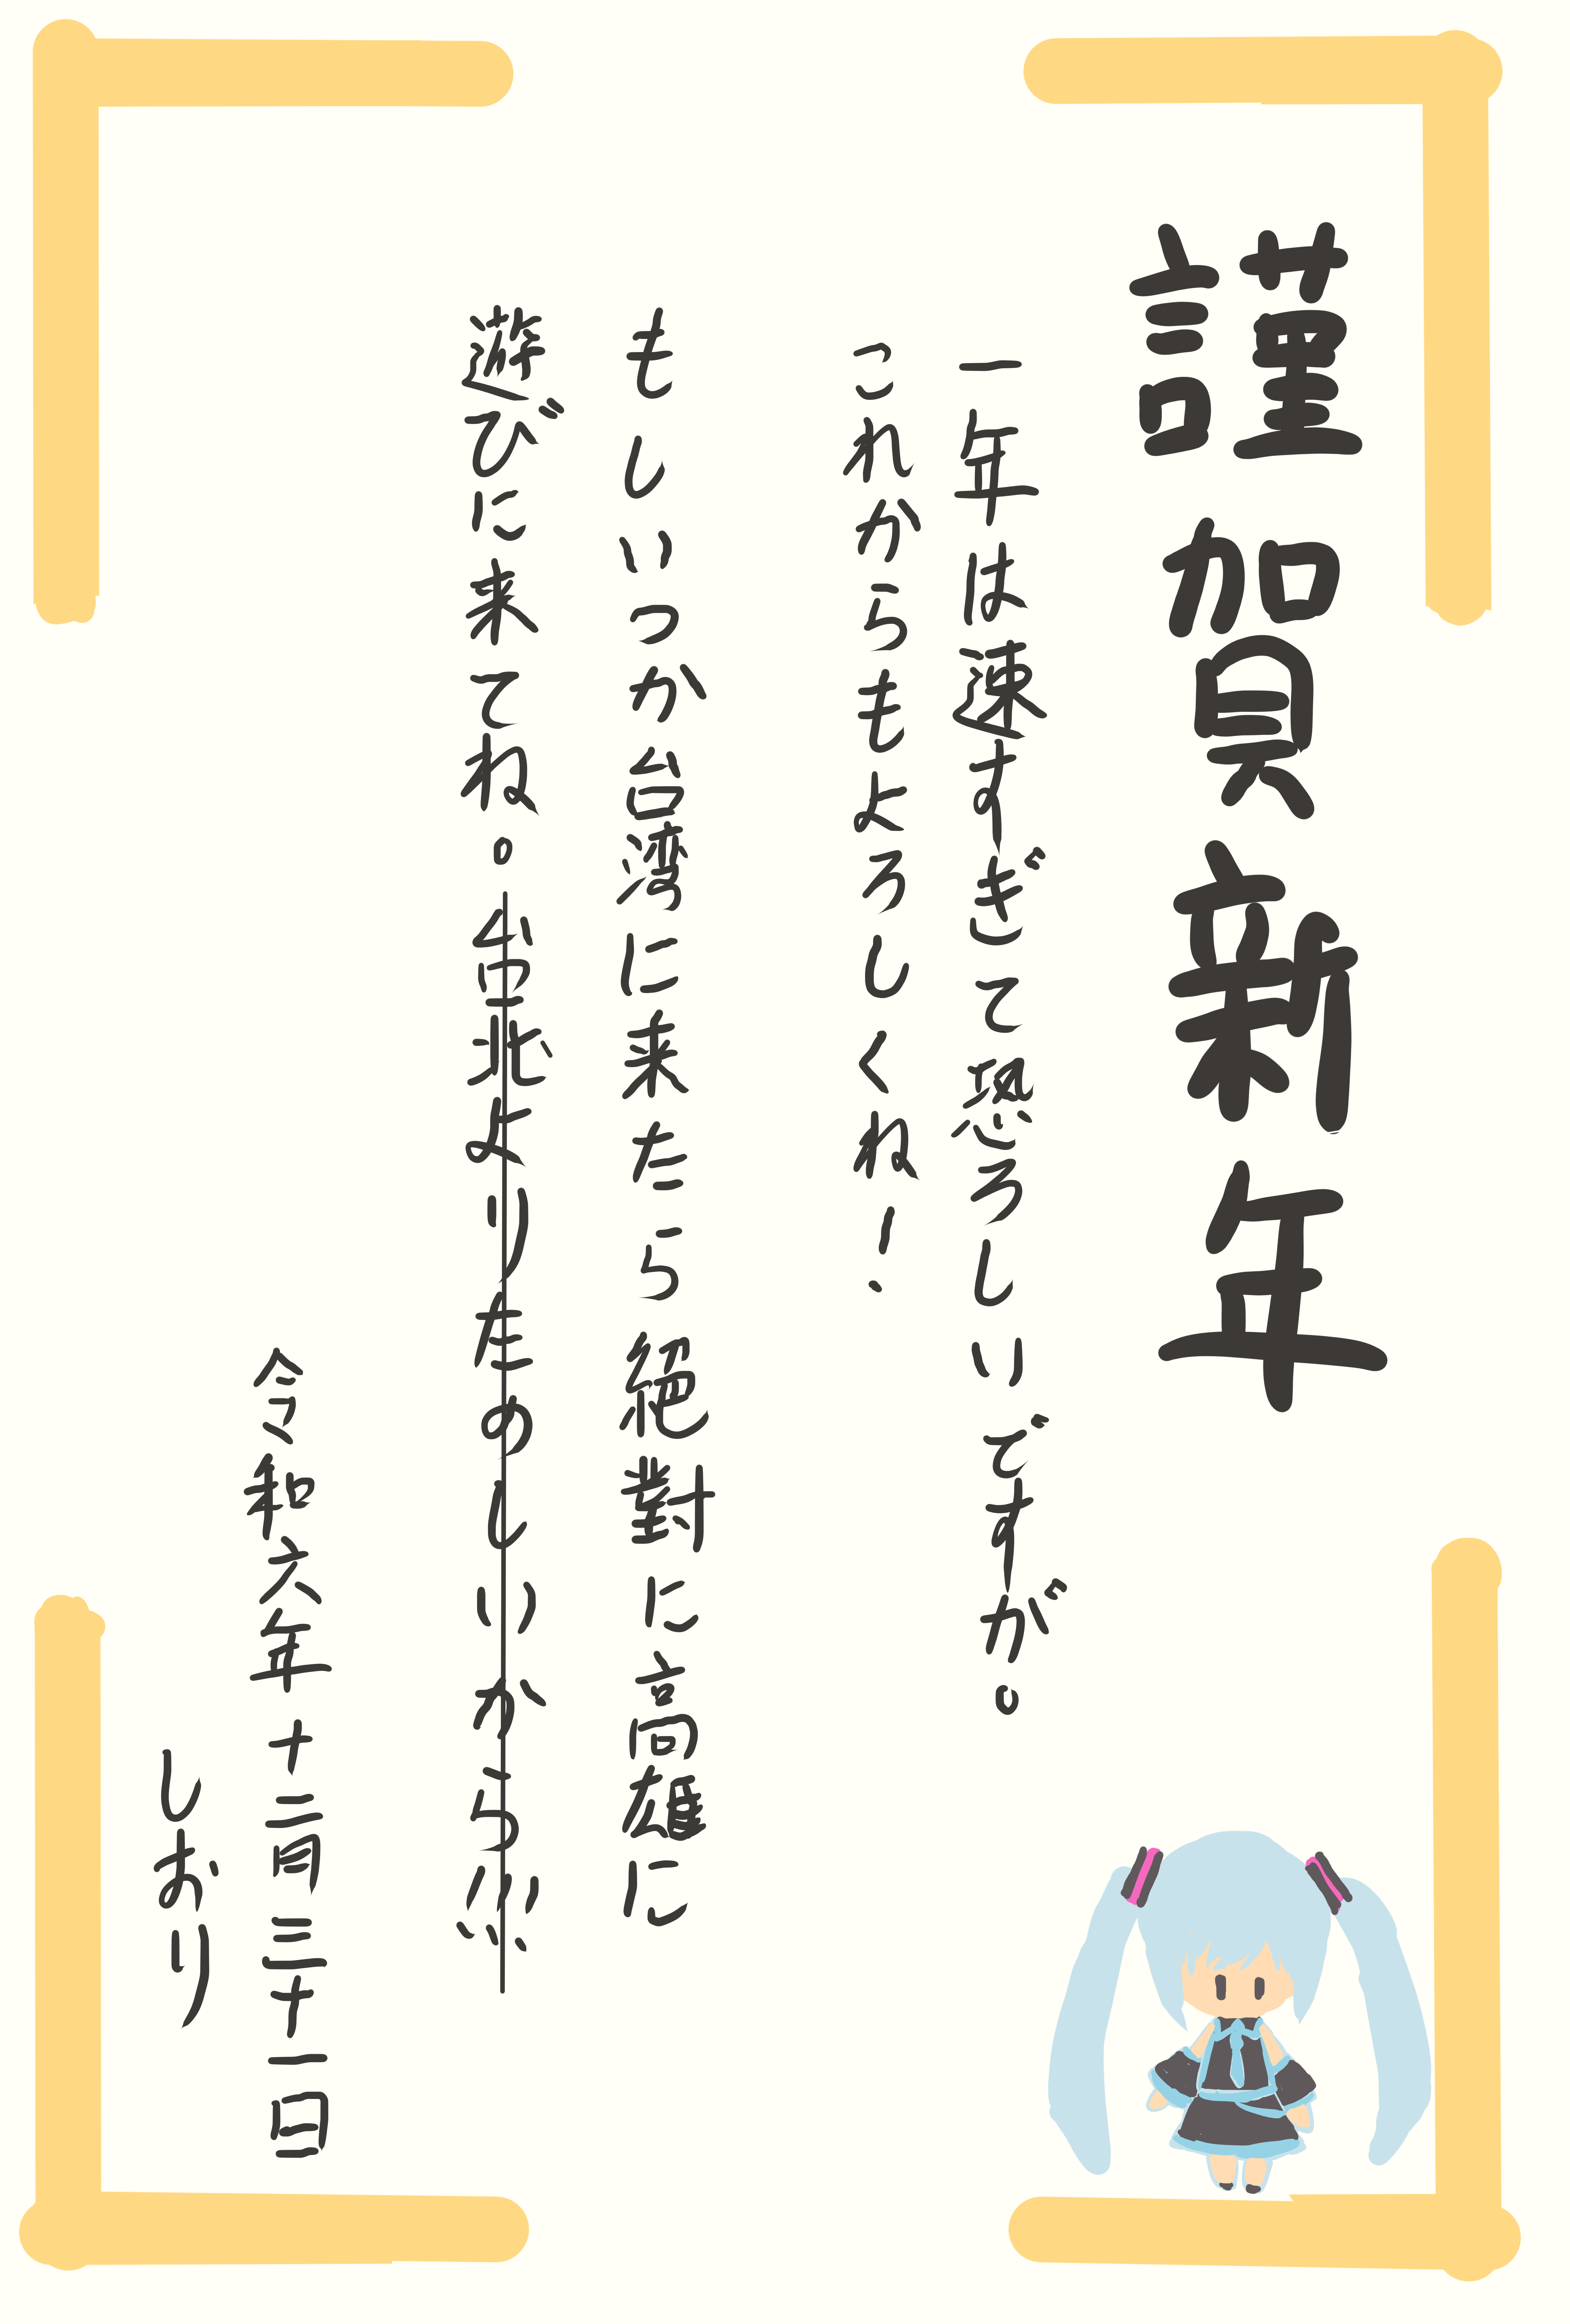 謹賀新年
一年は速すぎて恐ろしいですが。
これからもよろしくね！
もしいつか台湾に来たら絶對に高雄に
遊びに来てね。台北よりたのしいから……
令和六年十二月三十一日
しおり